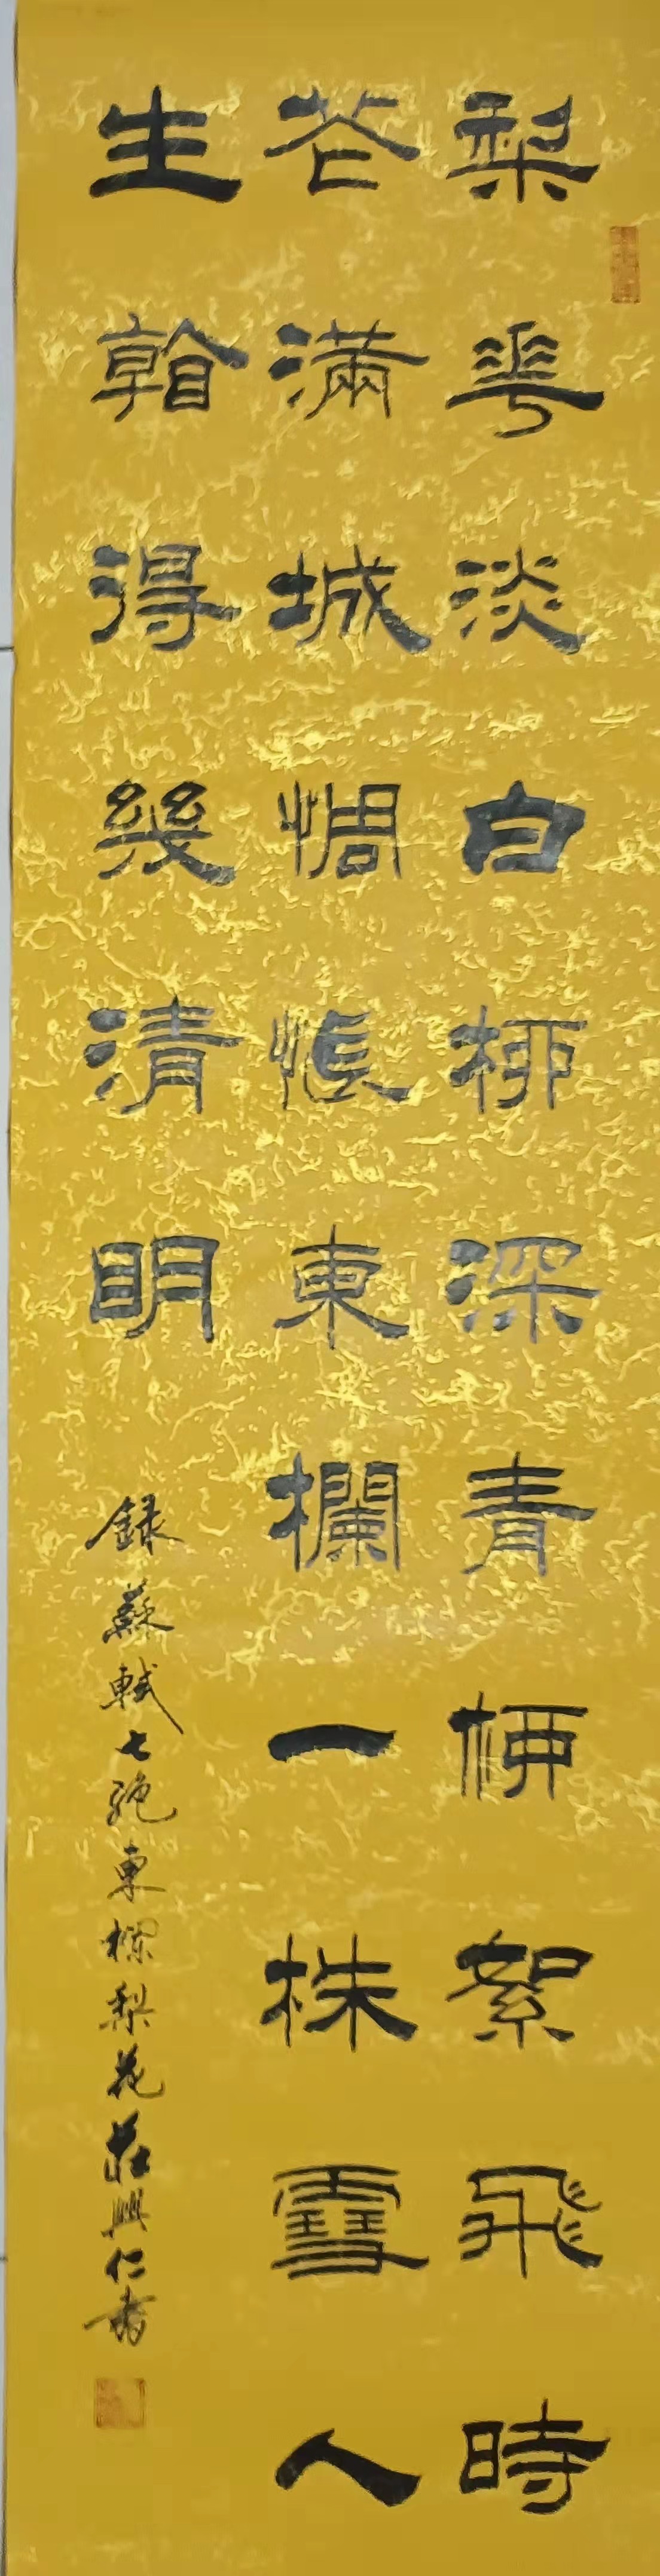 梨華淡白柳深青柳絮飛時
花滿城惆悵東欄一株雪人
生看得幾清明
錄蘇軾七絕東欄梨花莊興仁書